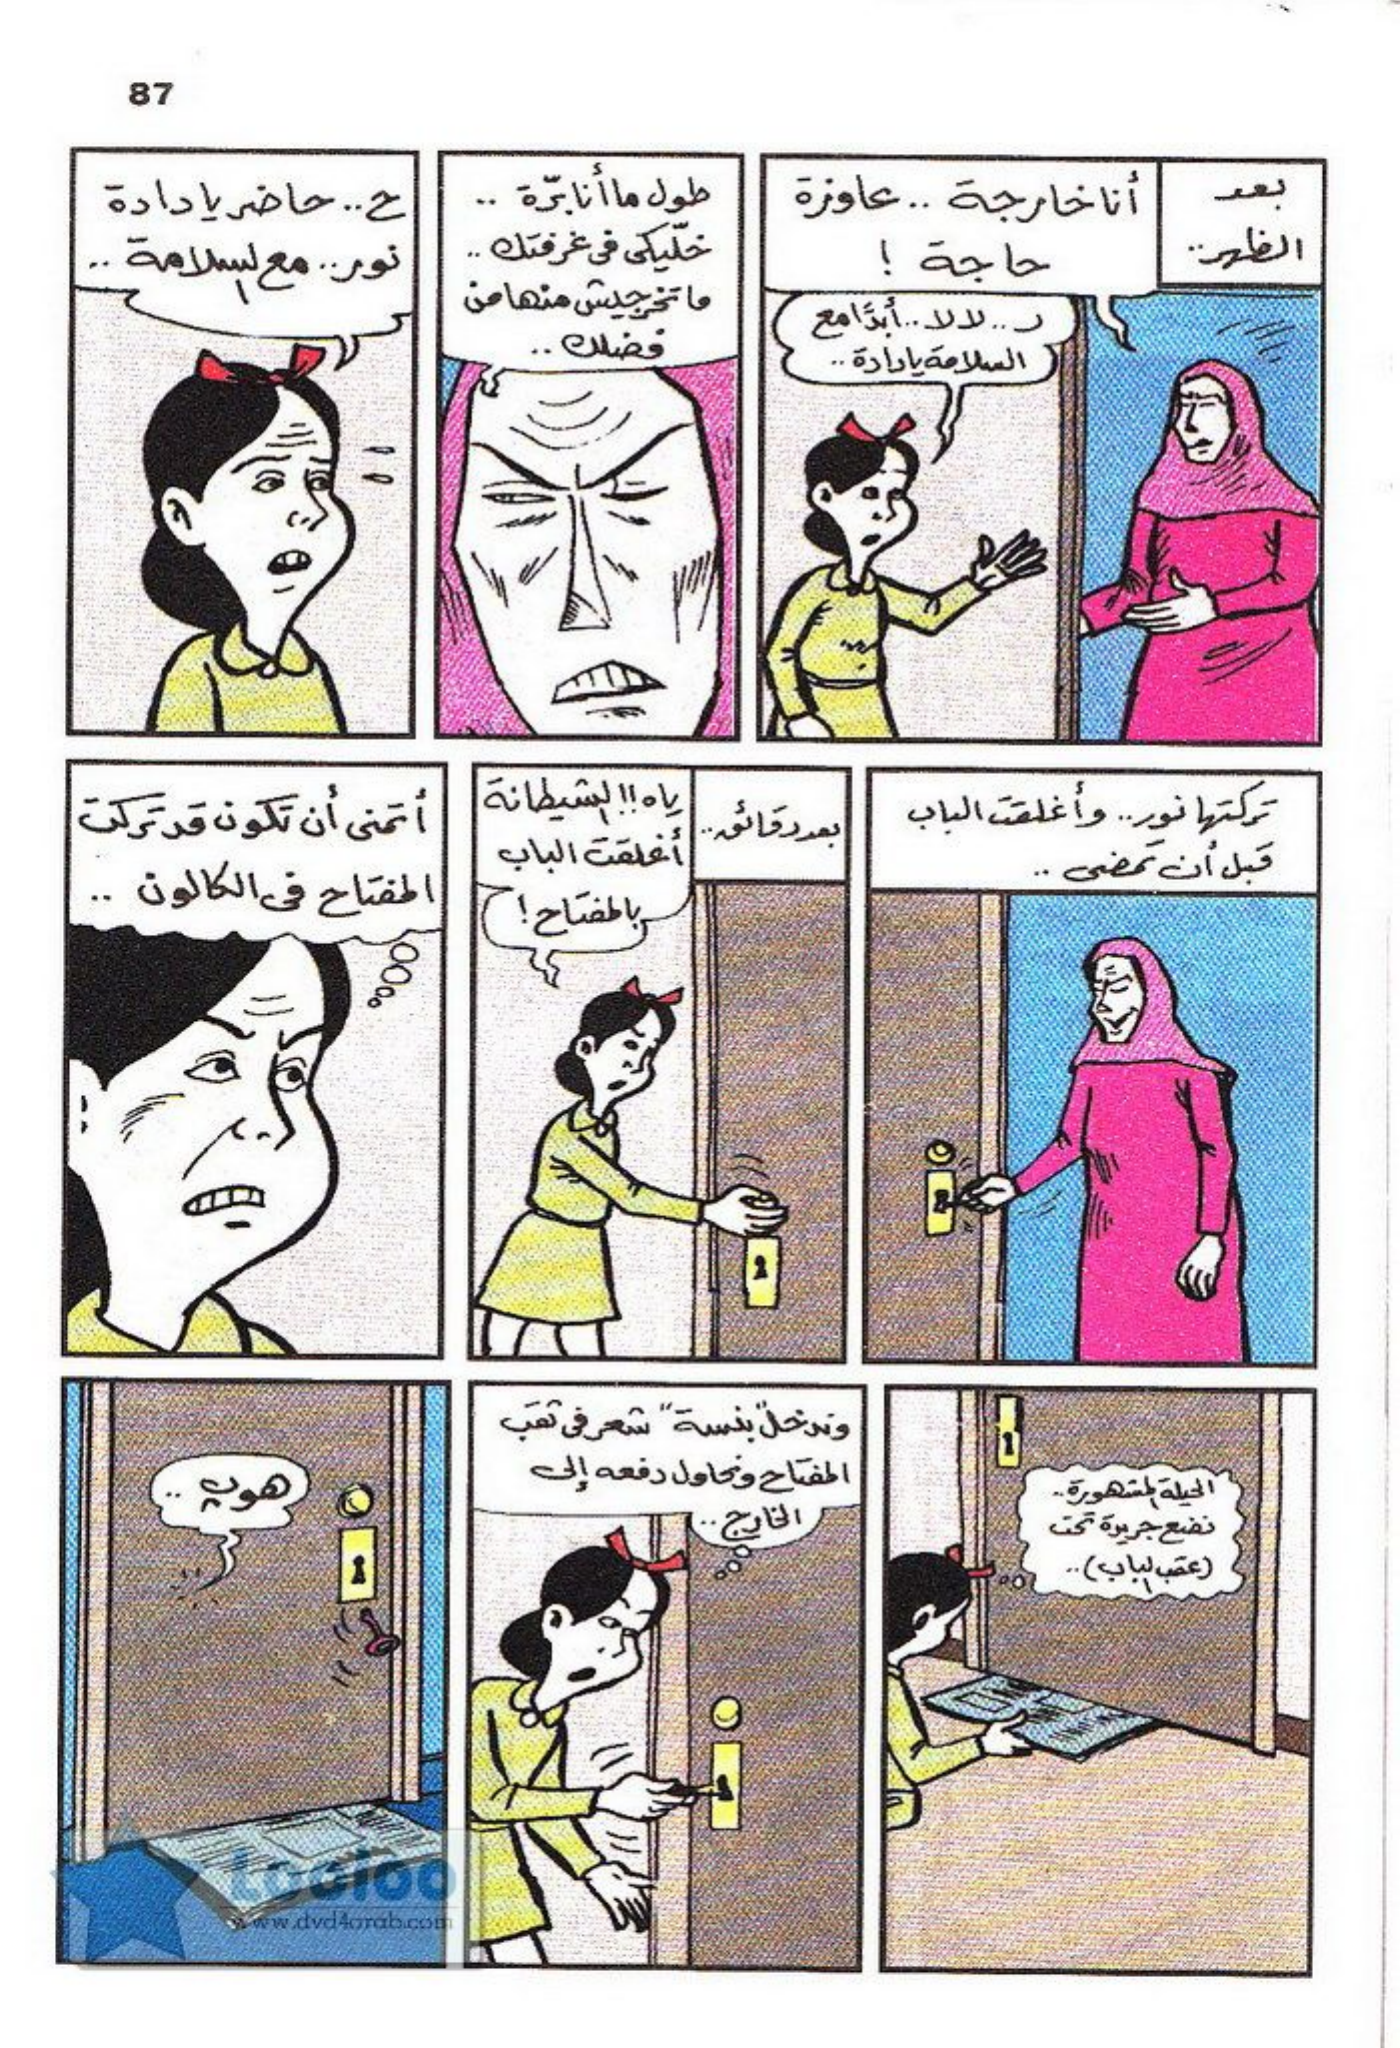 87
بعد
الظهر..
أنا خارجة .. عاوزة
حاجة !
لا لا .. أبدًا مع
السلامة يا دادة ..
طول ما أنا برّة ..
خلّيكى فى غرفتك ..
ما تخرجيش منها من
فضلك ..
ح .. حاضر يا دادة
نور .. مع السلامة ..
تركتها نور .. وأغلقت الباب
قبل أن تمضى ..
بعد دقائق ..
ياه !! الشيطانة
أغلقت الباب
بالمفتاح !
أتمنى أن تكون قد تركت
المفتاح فى الكالون ..
الحيلة المشهورة ..
نضع جريدة تحت
(عقب الباب) ..
وندخل "بنسة" شعر فى ثقب
المفتاح ونحاول دفعه إلى
الخارج ..
هوب ..
Looloo
www.dvd4arab.com